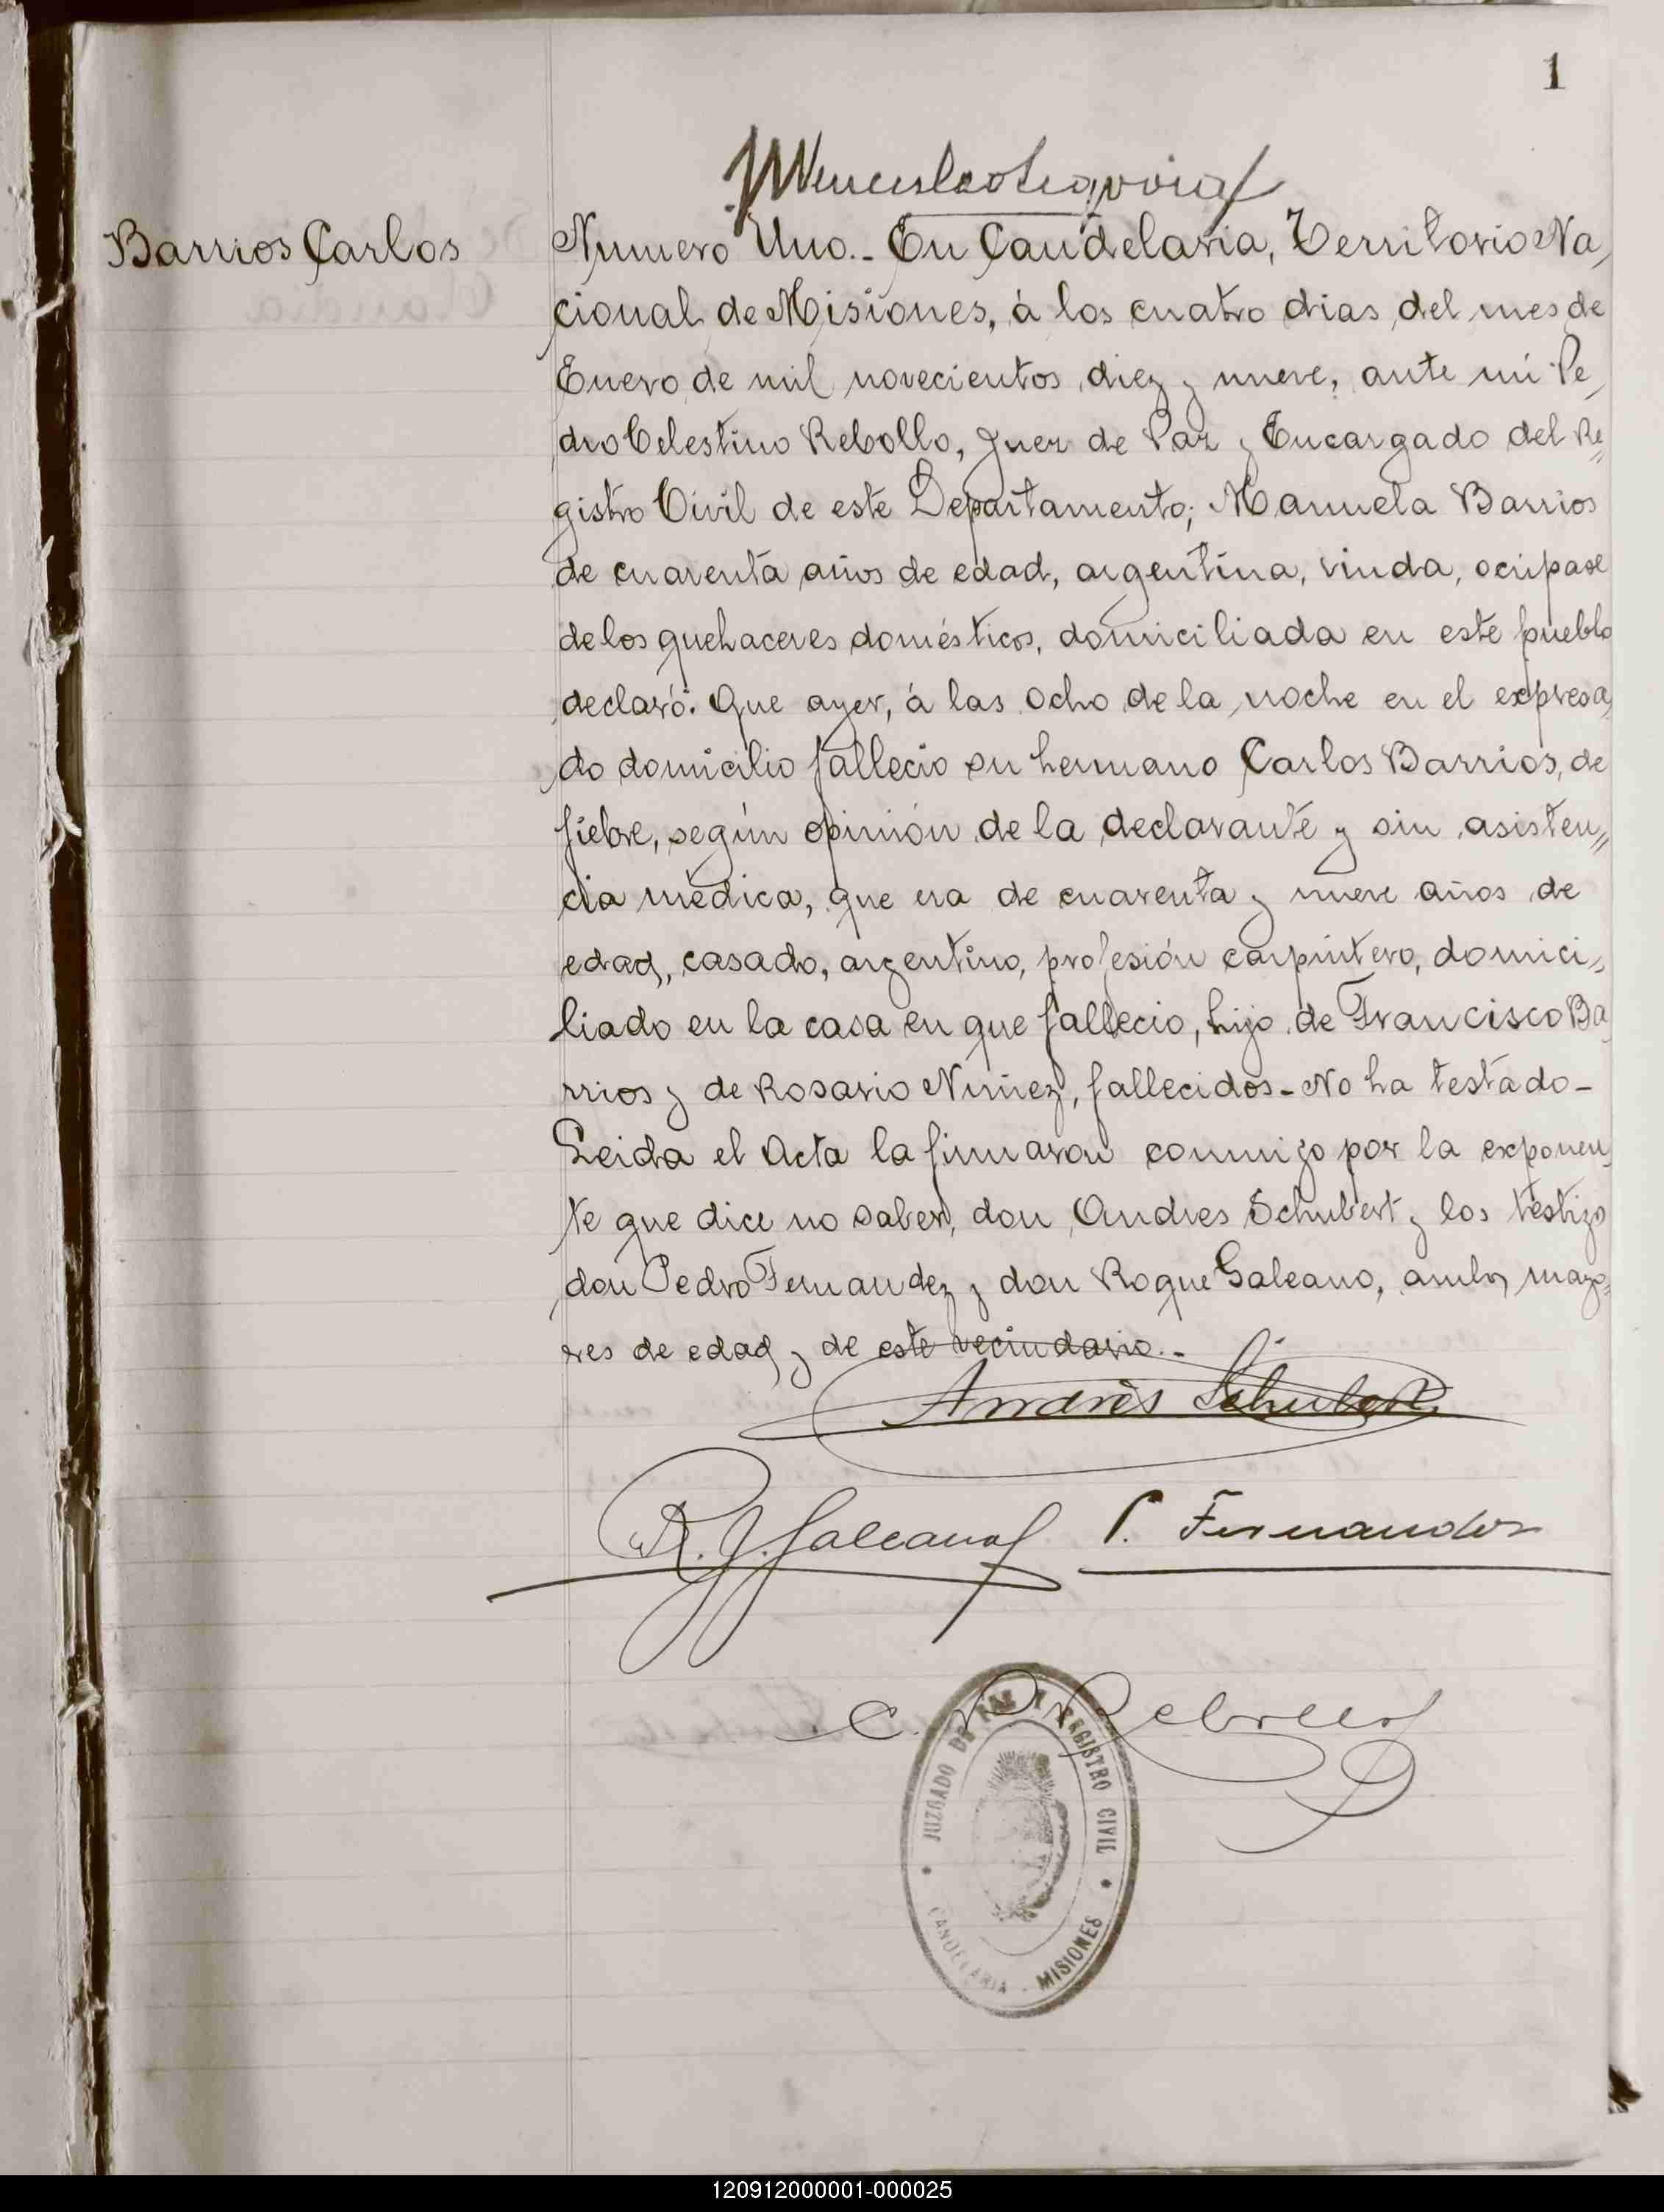 1
Barrios Carlos
Numero Uno.- En Candelaria, Territorio Na,
cional de Misiones, á los cuatro dias del mes de
Enero de mil novecientos diez y nueve, ante mi Pe,
dro Celestino Rebollo, Juez de Paz y Encargado del Re=
gistro Civil de este Departamento; Manuela Barrios
de cuarenta años de edad, argentina, viuda, ocupase
de los quehaceres domésticos, domiciliada en este pueblo
declaró: Que ayer, á las ocho de la noche en el expresa,
do domicilio fallecio su hermano Carlos Barrios, de
fiebre, según opinión de la declarante y sin asisten,,
cia médica, que era de cuarenta y nueve años de
edad, casado, argentino, profesión carpintero, domici,,
liado en la casa en que fallecio, hijo de Francisco Ba
rrios y de Rosario Nuñez, fallecidos - No ha testado -
Leida el Acta la firmaron conmigo por la exponen,
te que dice no saber, don Andres Schubert y los testigo
don Pedro Fernandez y don Roque Galeano, ambos mayo=
res de edad y de este vecindario.-
Andrés Schubert
R. J. Galeano P. Fernandez
C. P. Rebollo
JUZGADO DE PAZ Y REGISTRO CIVIL
CANDELARIA - MISIONES
120912000001-000025